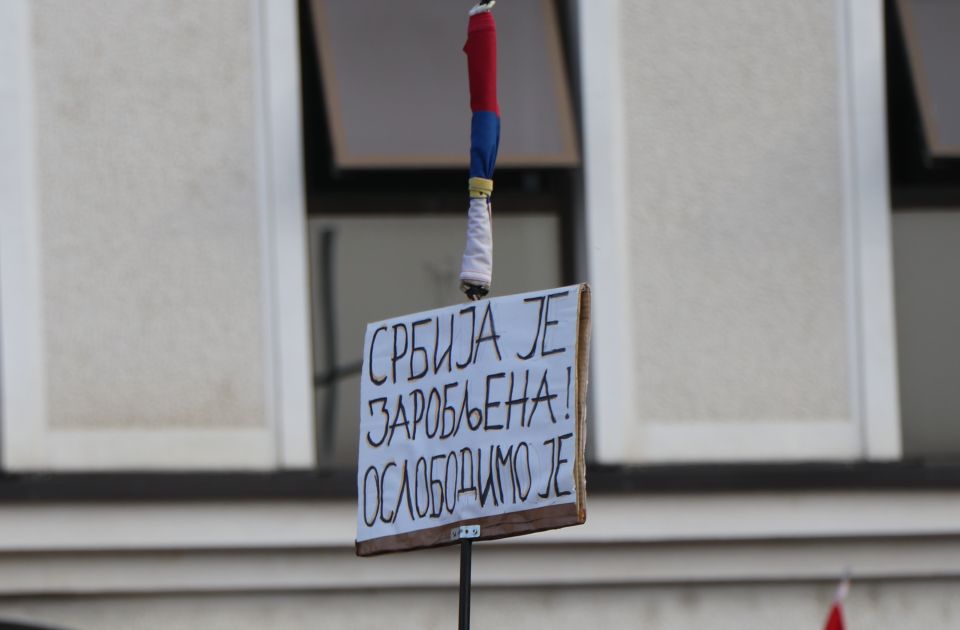 СРБИЈА ЈЕ
ЗАРОБЉЕНА!
ОСЛОБОДИМО ЈЕ